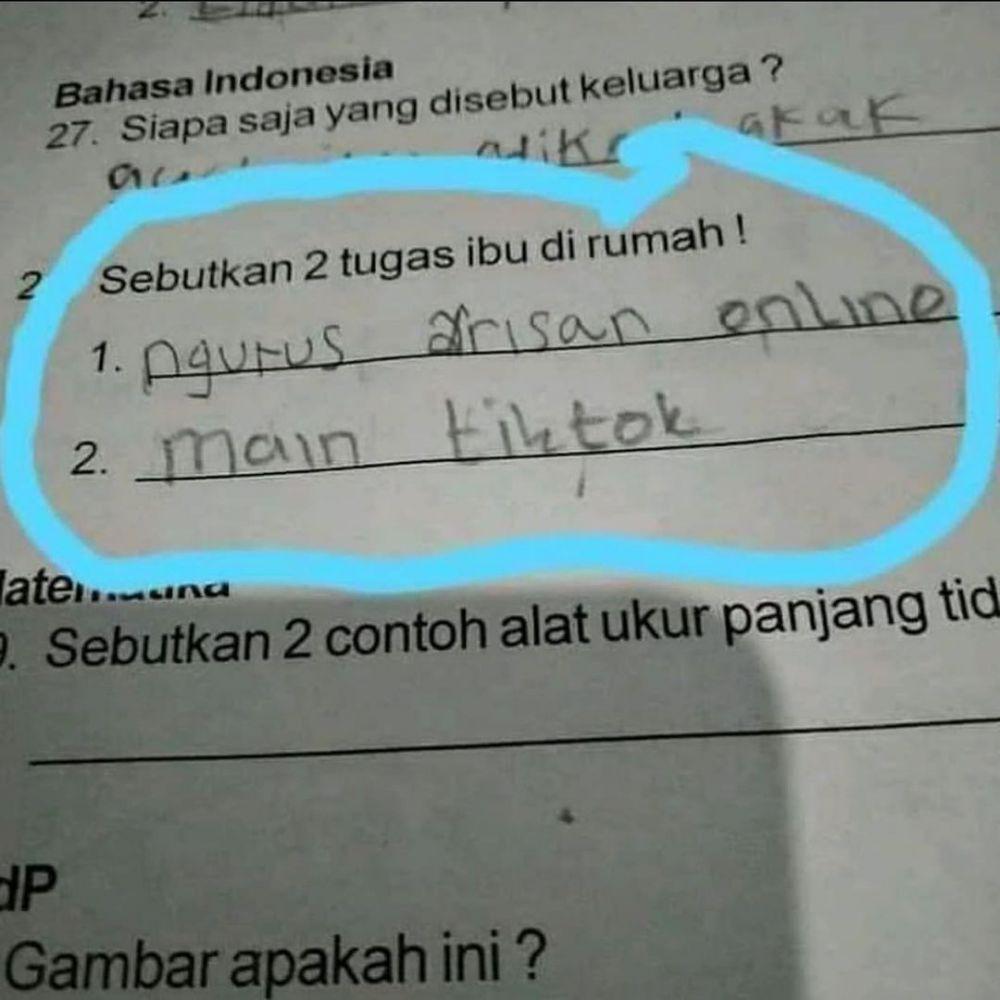 2.
Bahasa Indonesia
27. Siapa saja yang disebut keluarga ?
adik akak
2 Sebutkan 2 tugas ibu di rumah !
1. ngurus arisan online
2. main tiktok
9. Sebutkan 2 contoh alat ukur panjang tid
dP
Gambar apakah ini ?